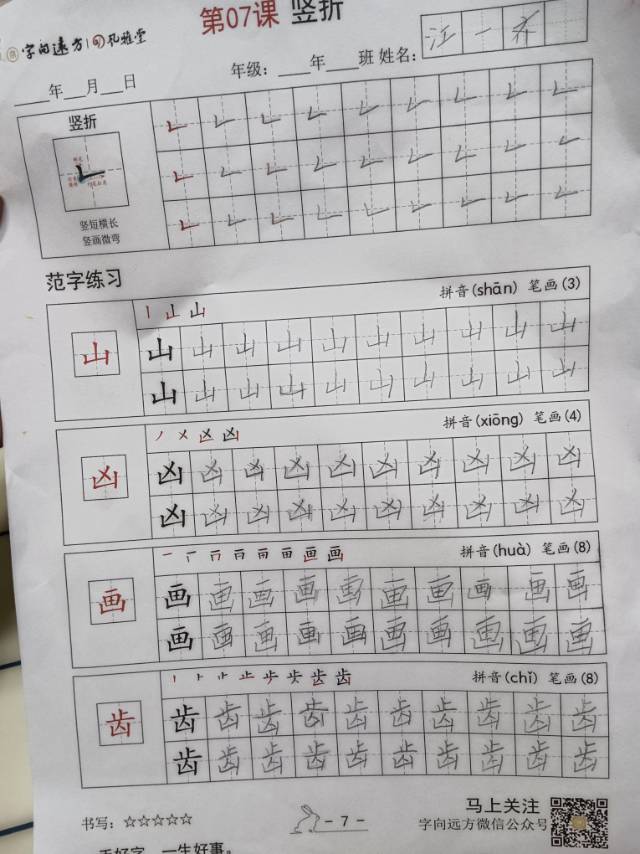 第07课 竖折
字向远方 孔雅堂
江一齐
___年___月___日 年级:___年___班 姓名:
竖折
竖短横长
竖画微弯
范字练习
拼音(shān) 笔画(3)
山
山 山 山 山 山 山 山 山 山 山
山 山 山 山 山 山 山 山 山 山
拼音(xiōng) 笔画(4)
凶
凶 凶 凶 凶 凶 凶 凶 凶 凶 凶
凶 凶 凶 凶 凶 凶 凶 凶 凶 凶
拼音(huà) 笔画(8)
画
画 画 画 画 画 画 画 画 画 画
画 画 画 画 画 画 画 画 画 画
拼音(chǐ) 笔画(8)
齿
齿 齿 齿 齿 齿 齿 齿 齿 齿 齿
齿 齿 齿 齿 齿 齿 齿 齿 齿 齿
书写:☆☆☆☆☆
- 7 -
马上关注
字向远方微信公众号
手好字,一生好事。